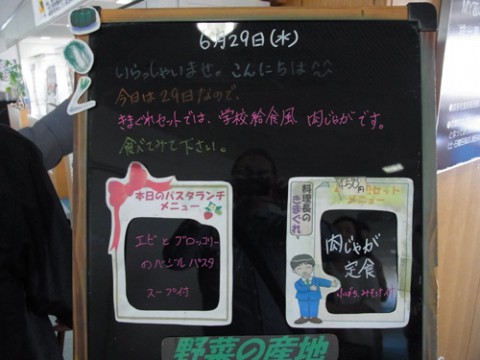 6月29日(水)
いらっしゃいませ。こんにちは^^
今日は29日なので、
きまぐれセットでは、学校給食風 肉じゃがです。
食べてみて下さい。
本日のパスタランチ
メニュー
エビとブロッコリー
のバジルパスタ
スープ付
料理長の
きまぐれ
セット
メニュー
肉じゃが
定食
野菜の産地